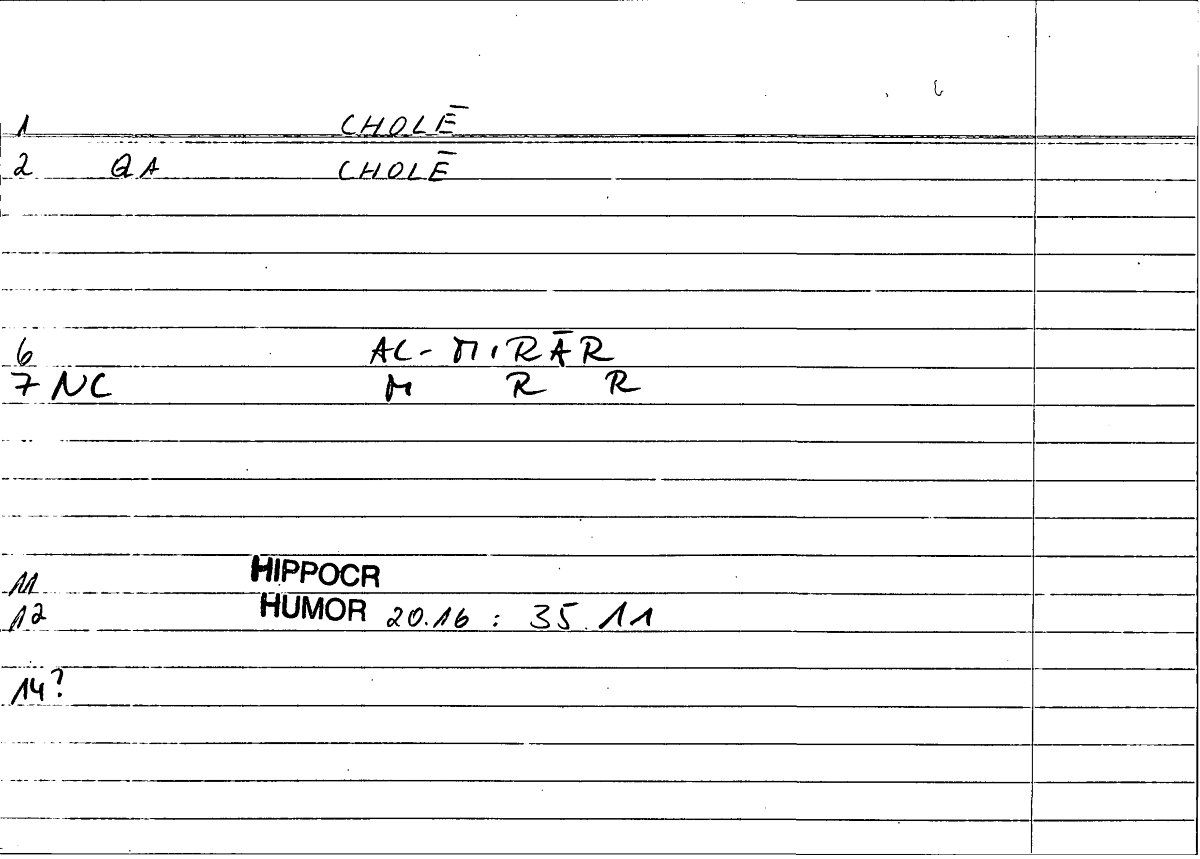 1 CHOLĒ
2 QA CHOLĒ
6 AL-MIRĀR
7 NC M R R
11 HIPPOCR
12 HUMOR 20.16 : 35.11
14?